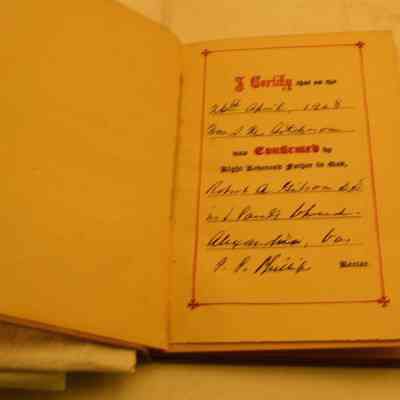 I Certify that on the
26th April, 1908
Wm. S. N. Aitcheson
was Confirmed by
Right Reverend Father in God,
Robert A. Gibson
in St. Paul's Church
Alexandria, Va.
Rector.